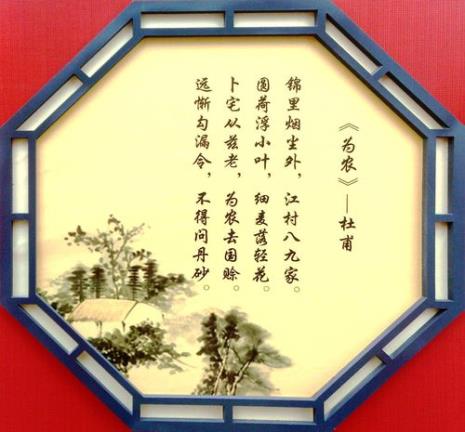 《为农》——杜甫
锦里烟尘外，江村八九家。
圆荷浮小叶，细麦落轻花。
卜宅从兹老，为农去国赊。
远惭勾漏令，不得问丹砂。